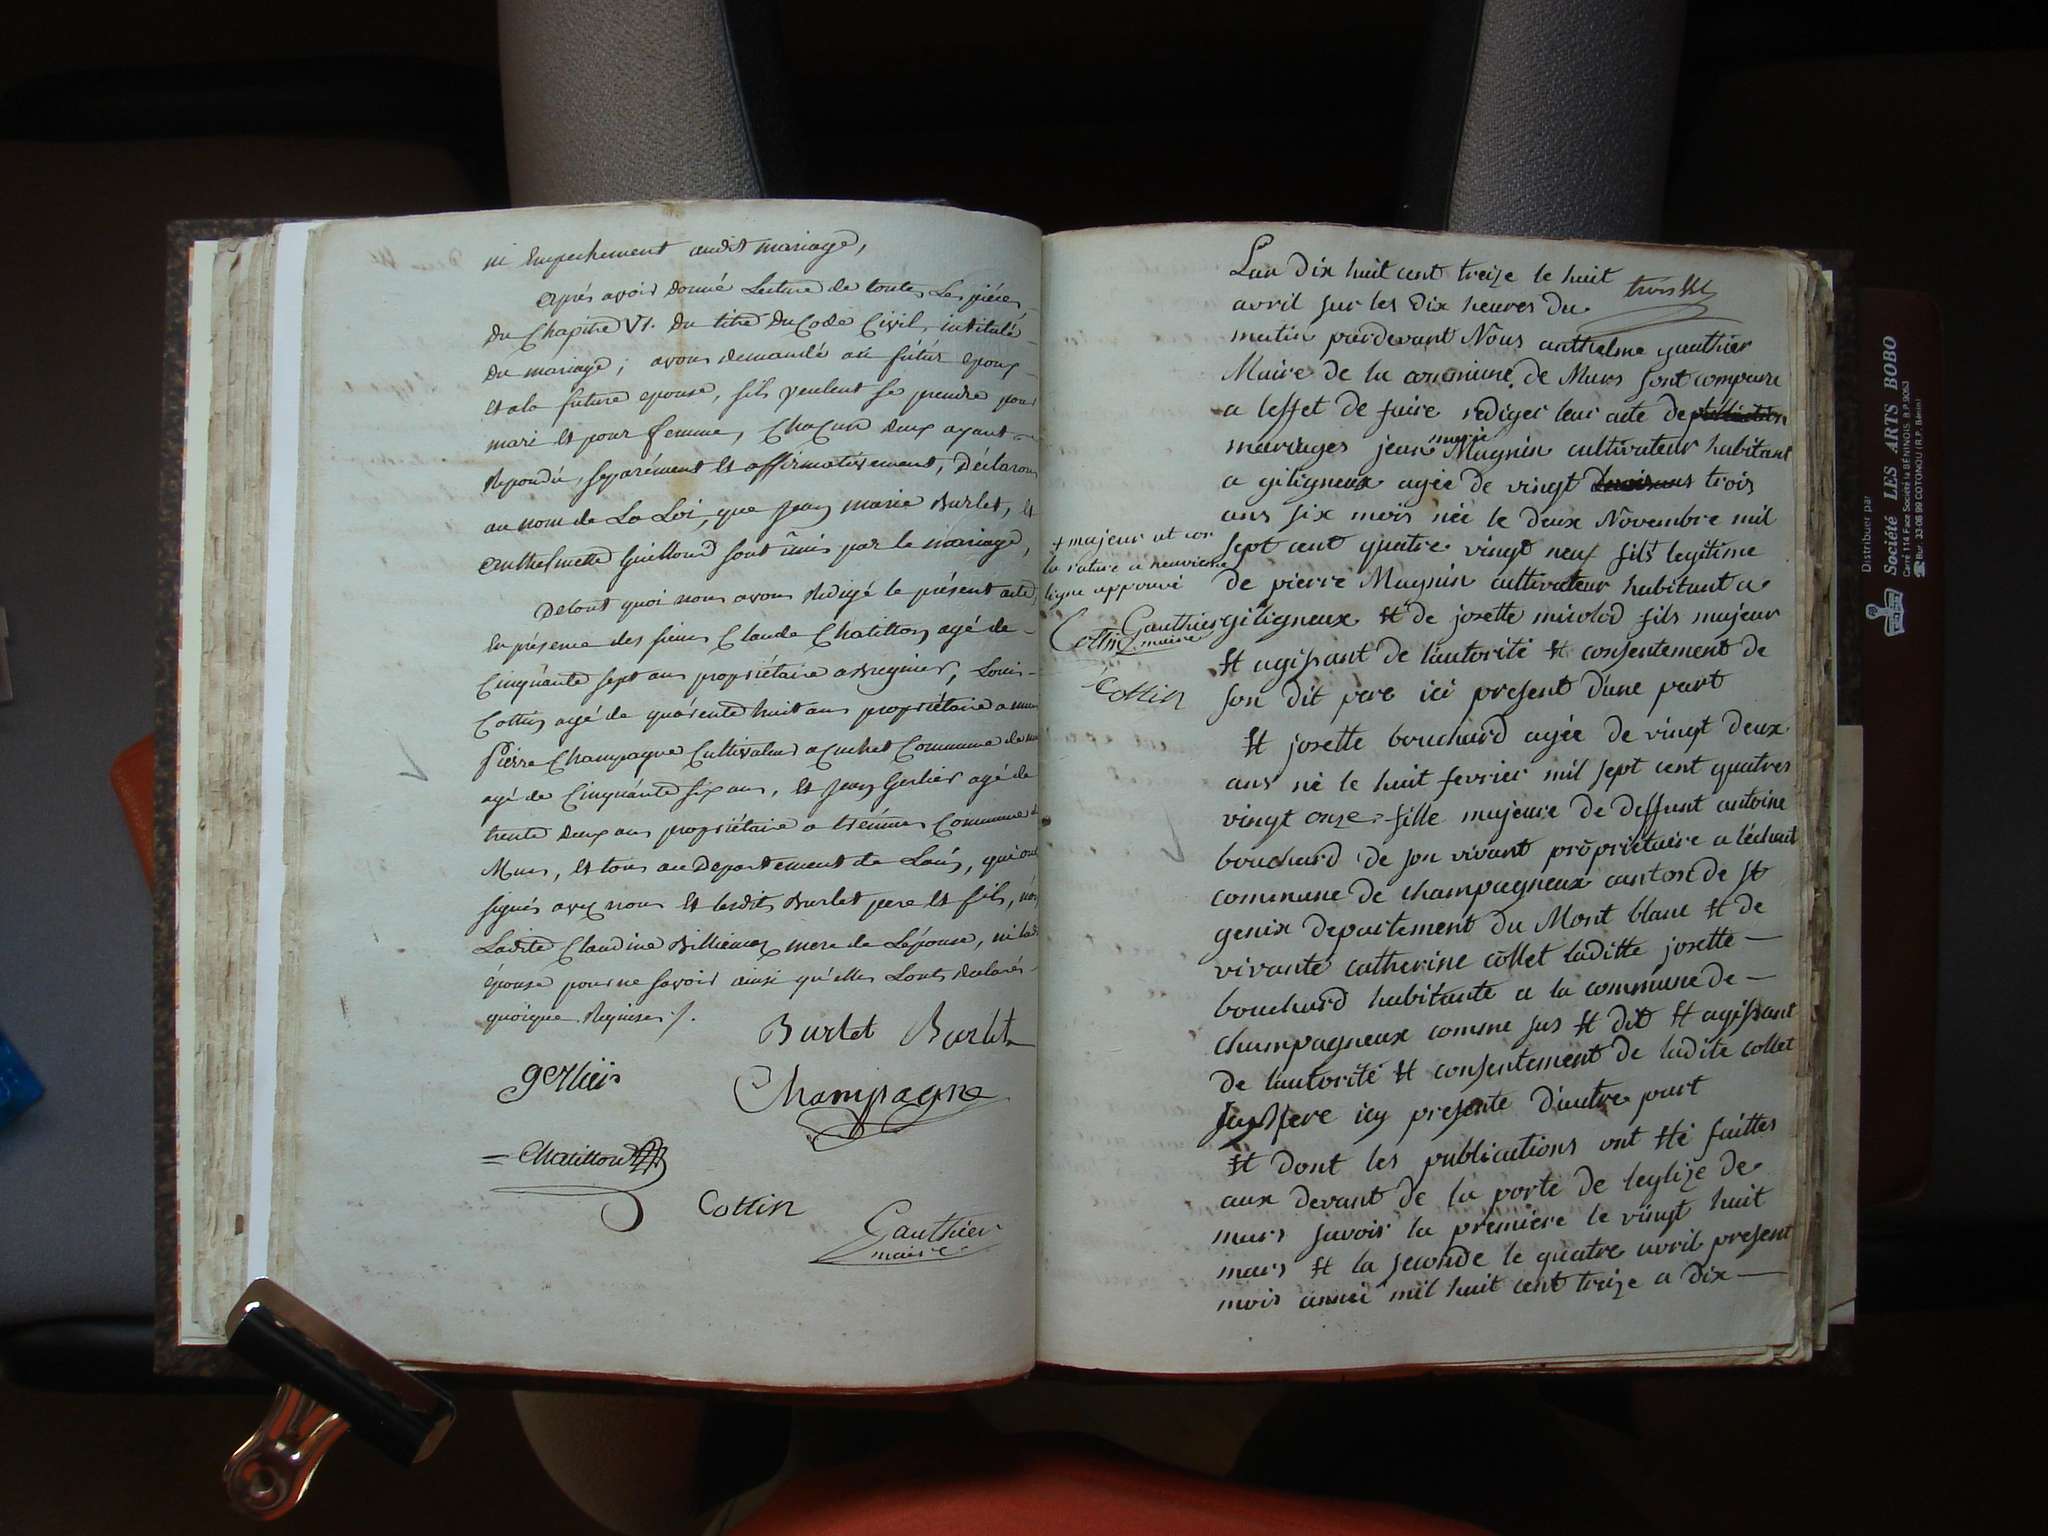 ni Empechement audit mariage,
après avoir Donné Lecture de toutes Les pièces,
Du Chapitre VI. Du titre Du Code Civil, intitulé
Du mariage; avons demandé au futur epoux
Et a la future epouse, s'ils veulent se prendre pour
mari Et pour femme, Chacun deux ayant
Repondu, séparément Et affirmativement, Déclarons
au nom de La Loi, que Jean marie Burlet, Et
anthelmette Guilloud sont unis par le mariage,
De tout quoi nous avons Redigé le présent acte,
En présence des sieurs Claude Chatillon agé de
Cinquante sept ans propriétaire a Bregnier, Louis
Cottin agé de quarente huit ans propriétaire a murs
Pierre Champagne Cultivateur a Cuchet Commune de
agé de Cinquante six ans, Et Jean Gerlier agé de
trente deux ans propriétaire a Commune de
Murs, Et tous au Departement de Lain, qui ont
signés avec nous Et lesdits Burlet pere Et fils, non
Ladite Claudine Billiemaz mere de Lépouse, ni ladite
épouse pour ne savoir ainsi qu'elles Lont Declarés
quoique Requises ./.
Burlet Burlet
gerlier
Champagne
= Chatillon
Cottin
Gauthier
maire
Lan Dix huit cent treize le huit
avril sur les Dix heures du
matin pardevant Nous anthelme gauthier
Maire de la commune de Murs sont comparu
a leffet de faire rediger leur acte de
mariages jean marie Magnin cultivateur habitant
a giligneux agée de vingt trois
ans six mois née le deux Novembre mil
sept cent quatre vingt neuf fils legitime
de pierre Magnin cultivateur habitant a
giligneux Et de josette miolod fils majeur
Et agissant de lautorité Et consentement de
son dit pere ici present d'une part
Et josette bouchard agée de vingt deux
ans né le huit fevrier mil sept cent quatres
vingt onze fille majeure de deffunt antoine
bouchard de son vivant propriétaire a léchaut
commune de champagneux canton de St
genix departement du Mont blanc Et de
vivante catherine collet laditte josette
bouchard habitante a la commune de
champagneux comme sus Et dit Et agissant
de lautorité Et consentement de ladite collet
sa Mere icy presente d'autre part
Et dont les publications ont Eté faittes
aux devant de la porte de leglize de
murs savoir la premiere le vingt huit
mars Et la seconde le quatre avril present
mois année mil huit cent treize a dix
+ majeur et
la rature a neuvieme
ligne approuvé
Gauthier
maire
Cottin
Cottin
Distribuer par
Société LES ARTS BOBO
Carré 114 Face Société la BÉNINOIS. B.P. 9063
☎ Bur. 33 06 99 COTONOU (R.P. Bénin)